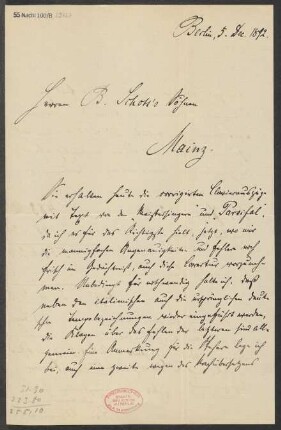 55 Nachl 100/B
Berlin, 5. Dec. 1892.
Herren B. Schott's Söhnen
Mainz.
Sie erhalten heute die corrigirten Clavierauszüge
mit Text von den Meistersingern und Parsifal,
da ich es für das Richtigste halte, jetzt, wo mir
die mannigfachen Ungenauigkeiten und Fehler noch
frisch im Gedächtniss, auch diese Correctur vorzuneh-
men. Unbedingt für nothwendig halte ich, daß
neben den italienischen auch die ursprünglichen deut-
schen Tempobezeichnungen wieder eingeführt werden,
die Klagen über das Fehlen der letzteren sind all-
gemein. Eine Anmerkung für die Stecher lege ich
bei, auch eine zweite wegen des